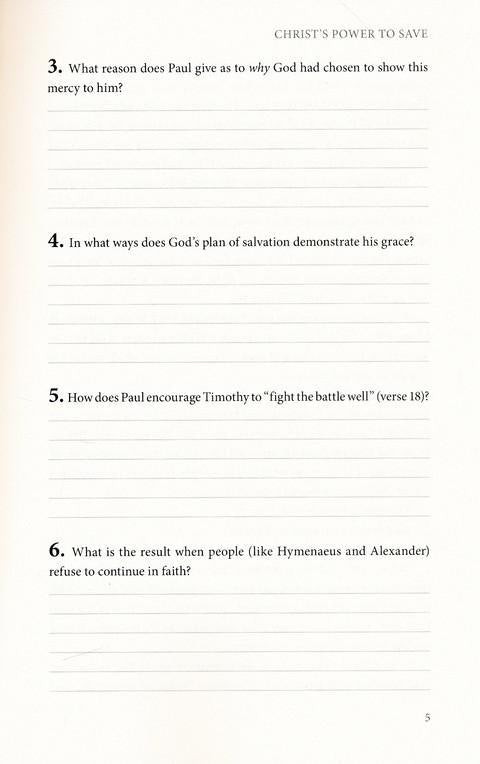 CHRIST'S POWER TO SAVE
3. What reason does Paul give as to why God had chosen to show this
mercy to him?
4. In what ways does God's plan of salvation demonstrate his grace?
5. How does Paul encourage Timothy to "fight the battle well" (verse 18)?
6. What is the result when people (like Hymenaeus and Alexander)
refuse to continue in faith?
5